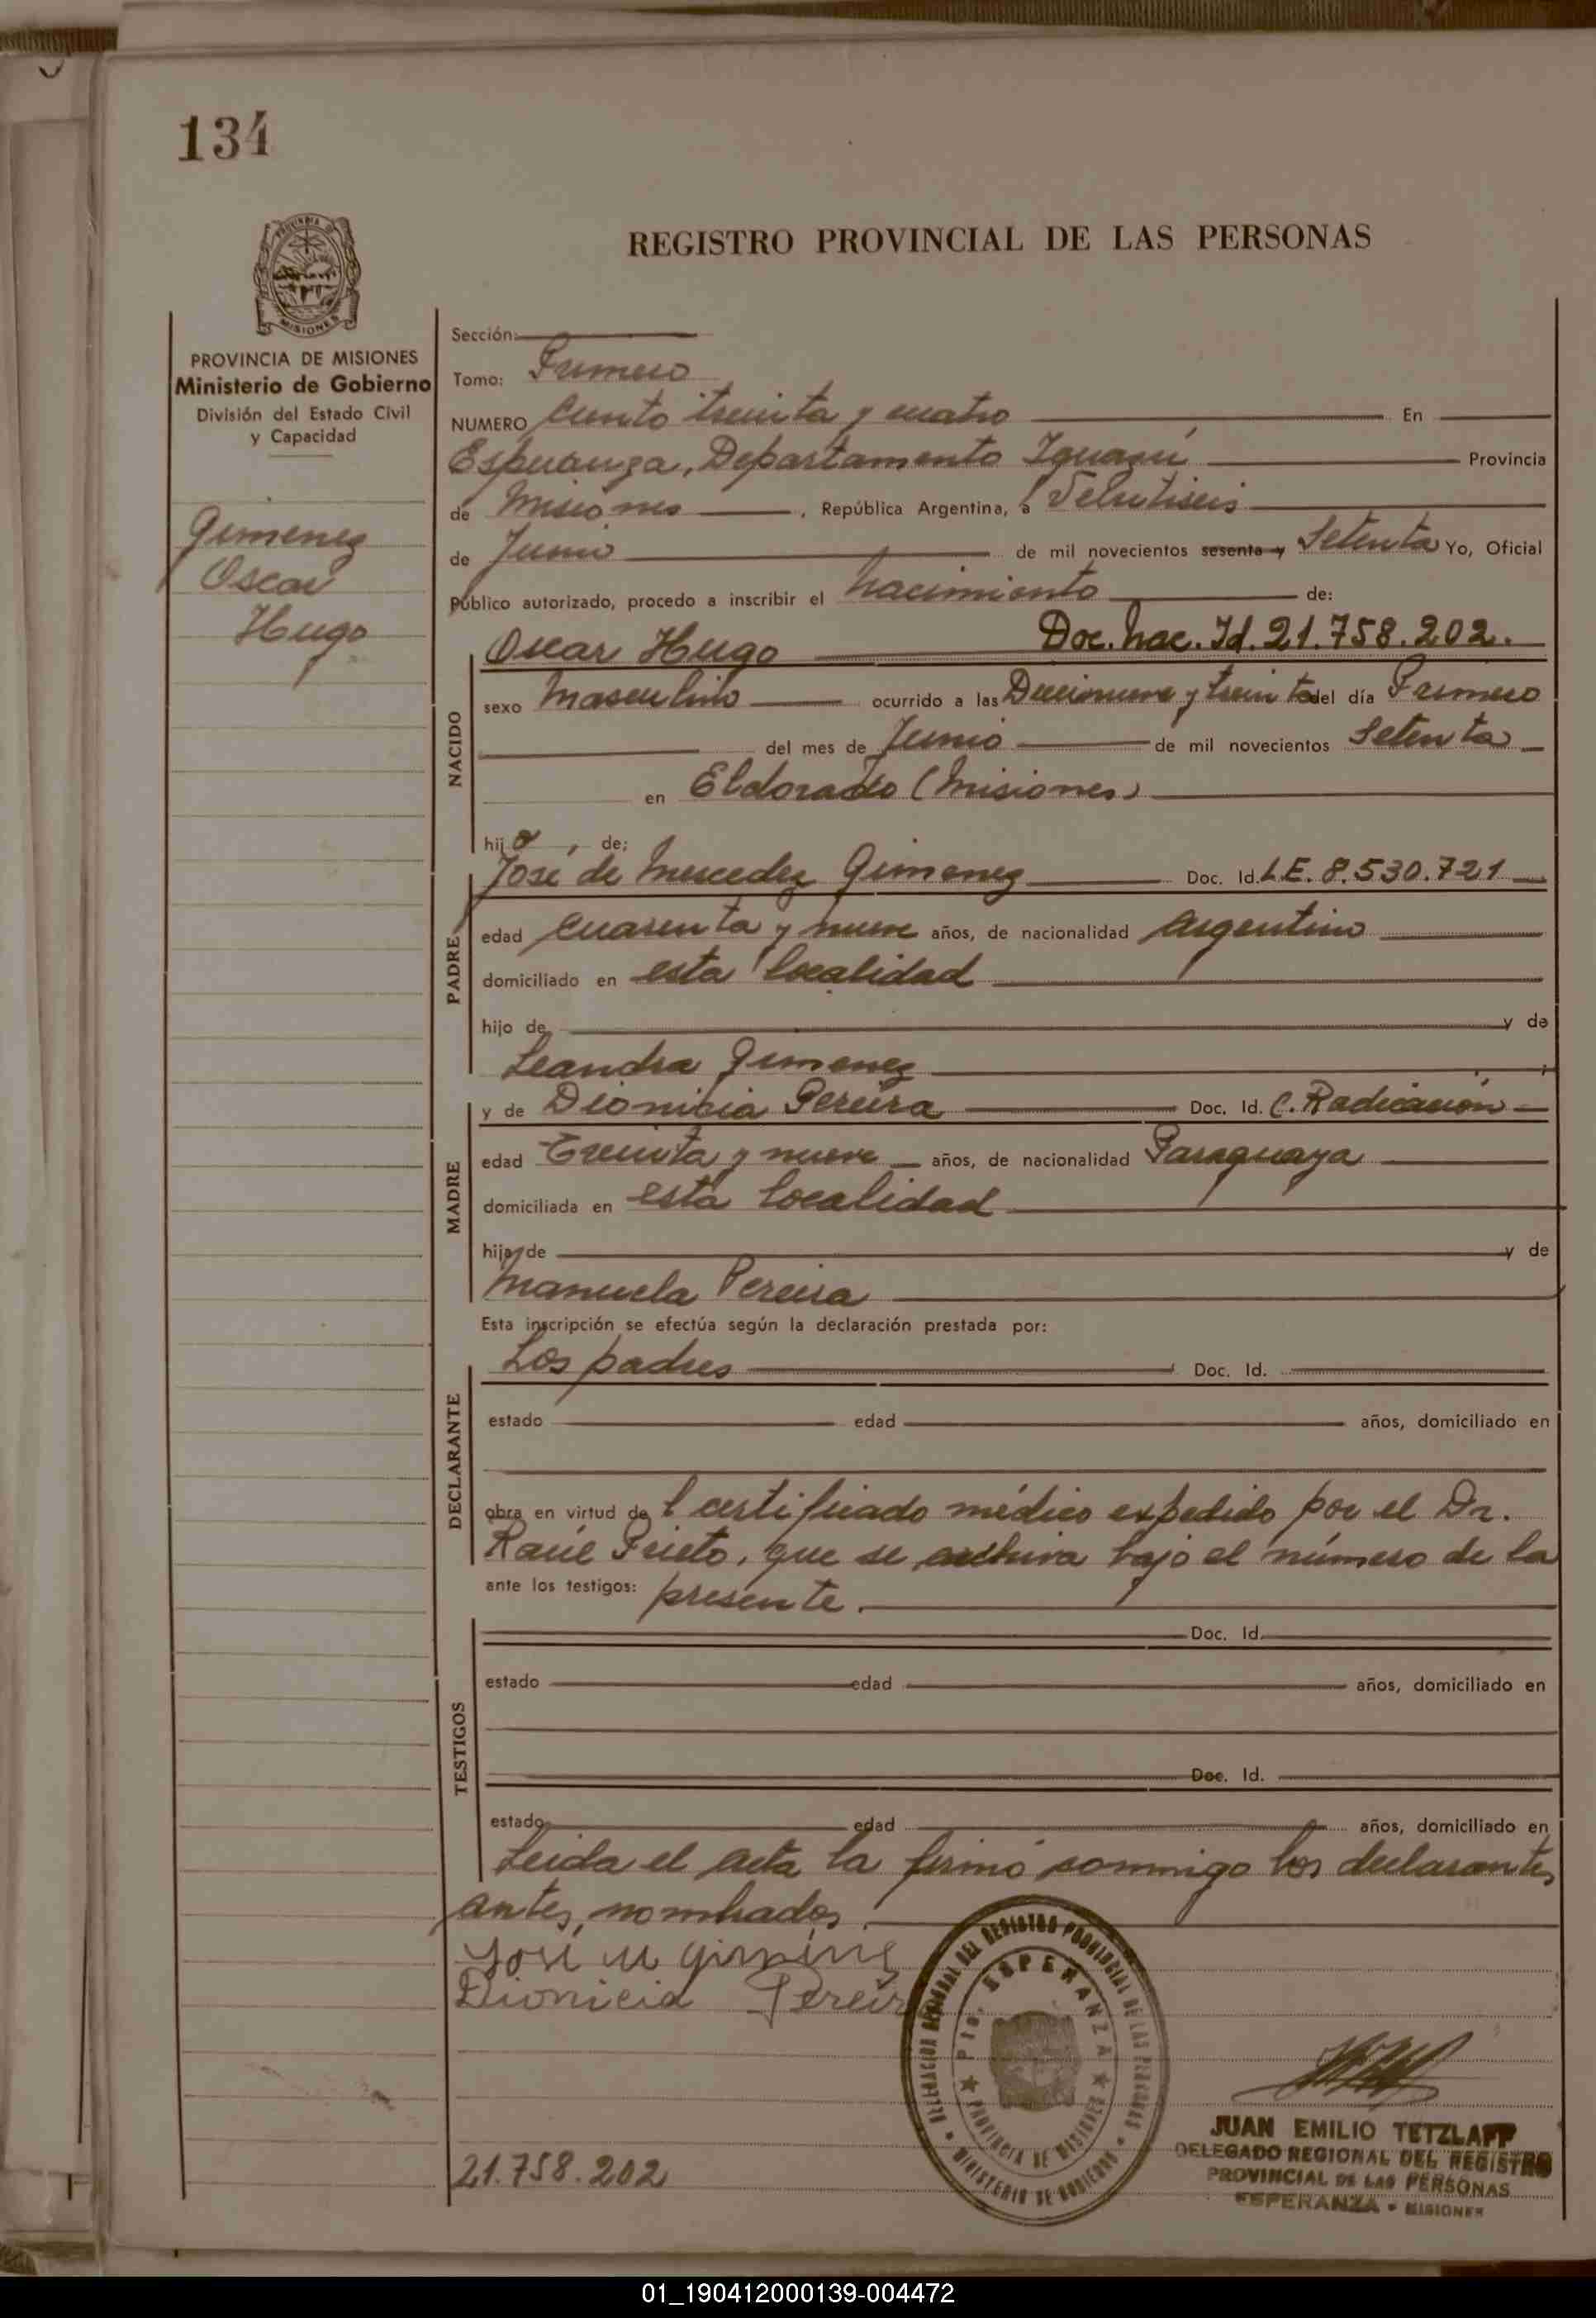 134
REGISTRO PROVINCIAL DE LAS PERSONAS
PROVINCIA DE MISIONES
Ministerio de Gobierno
División del Estado Civil
y Capacidad
Gimenez
Oscar
Hugo
Sección:
Tomo: Primero
NUMERO Ciento treinta y cuatro En
Esperanza, Departamento Iguazú Provincia
de Misiones, República Argentina, a Veintiseis
de Junio de mil novecientos sesenta y Setenta Yo, Oficial
Público autorizado, procedo a inscribir el nacimiento de:
Oscar Hugo Doc. Nac. Id. 21.758.202.
NACIDO
sexo Masculino ocurrido a las Diecinueve y treinta del día Primero
del mes de Junio de mil novecientos Setenta
en Eldorado (Misiones)
hijo, de;
PADRE
José de Mercedez Gimenez Doc. Id. L.E. 8.530.721
edad Cuarenta y nueve años, de nacionalidad Argentino
domiciliado en esta localidad
hijo de y de
Leandra Gimenez
MADRE
y de Dionicia Pereira Doc. Id. C. Radicación
edad Treinta y nueve años, de nacionalidad Paraguaya
domiciliada en esta localidad
hija de y de
Manuela Pereira
Esta inscripción se efectúa según la declaración prestada por:
DECLARANTE
Los padres Doc. Id.
estado edad años, domiciliado en
obra en virtud del certificado médico expedido por el Dr.
Raúl Prieto, que se archiva bajo el número de la
ante los testigos: presente.
TESTIGOS
Doc. Id.
estado edad años, domiciliado en
Doc. Id.
estado edad años, domiciliado en
Leida el acta la firmó conmigo los declarantes
antes nombrados.
José M Gimenez
Dionicia Pereir
DELEGACION REGIONAL DEL REGISTRO PROVINCIAL DE LAS PERSONAS
Pto. ESPERANZA
PROVINCIA DE MISIONES
MINISTERIO DE GOBIERNO
JUAN EMILIO TETZLAFF
DELEGADO REGIONAL DEL REGISTRO
PROVINCIAL DE LAS PERSONAS
ESPERANZA - MISIONES
21.758.202
01_190412000139-004472